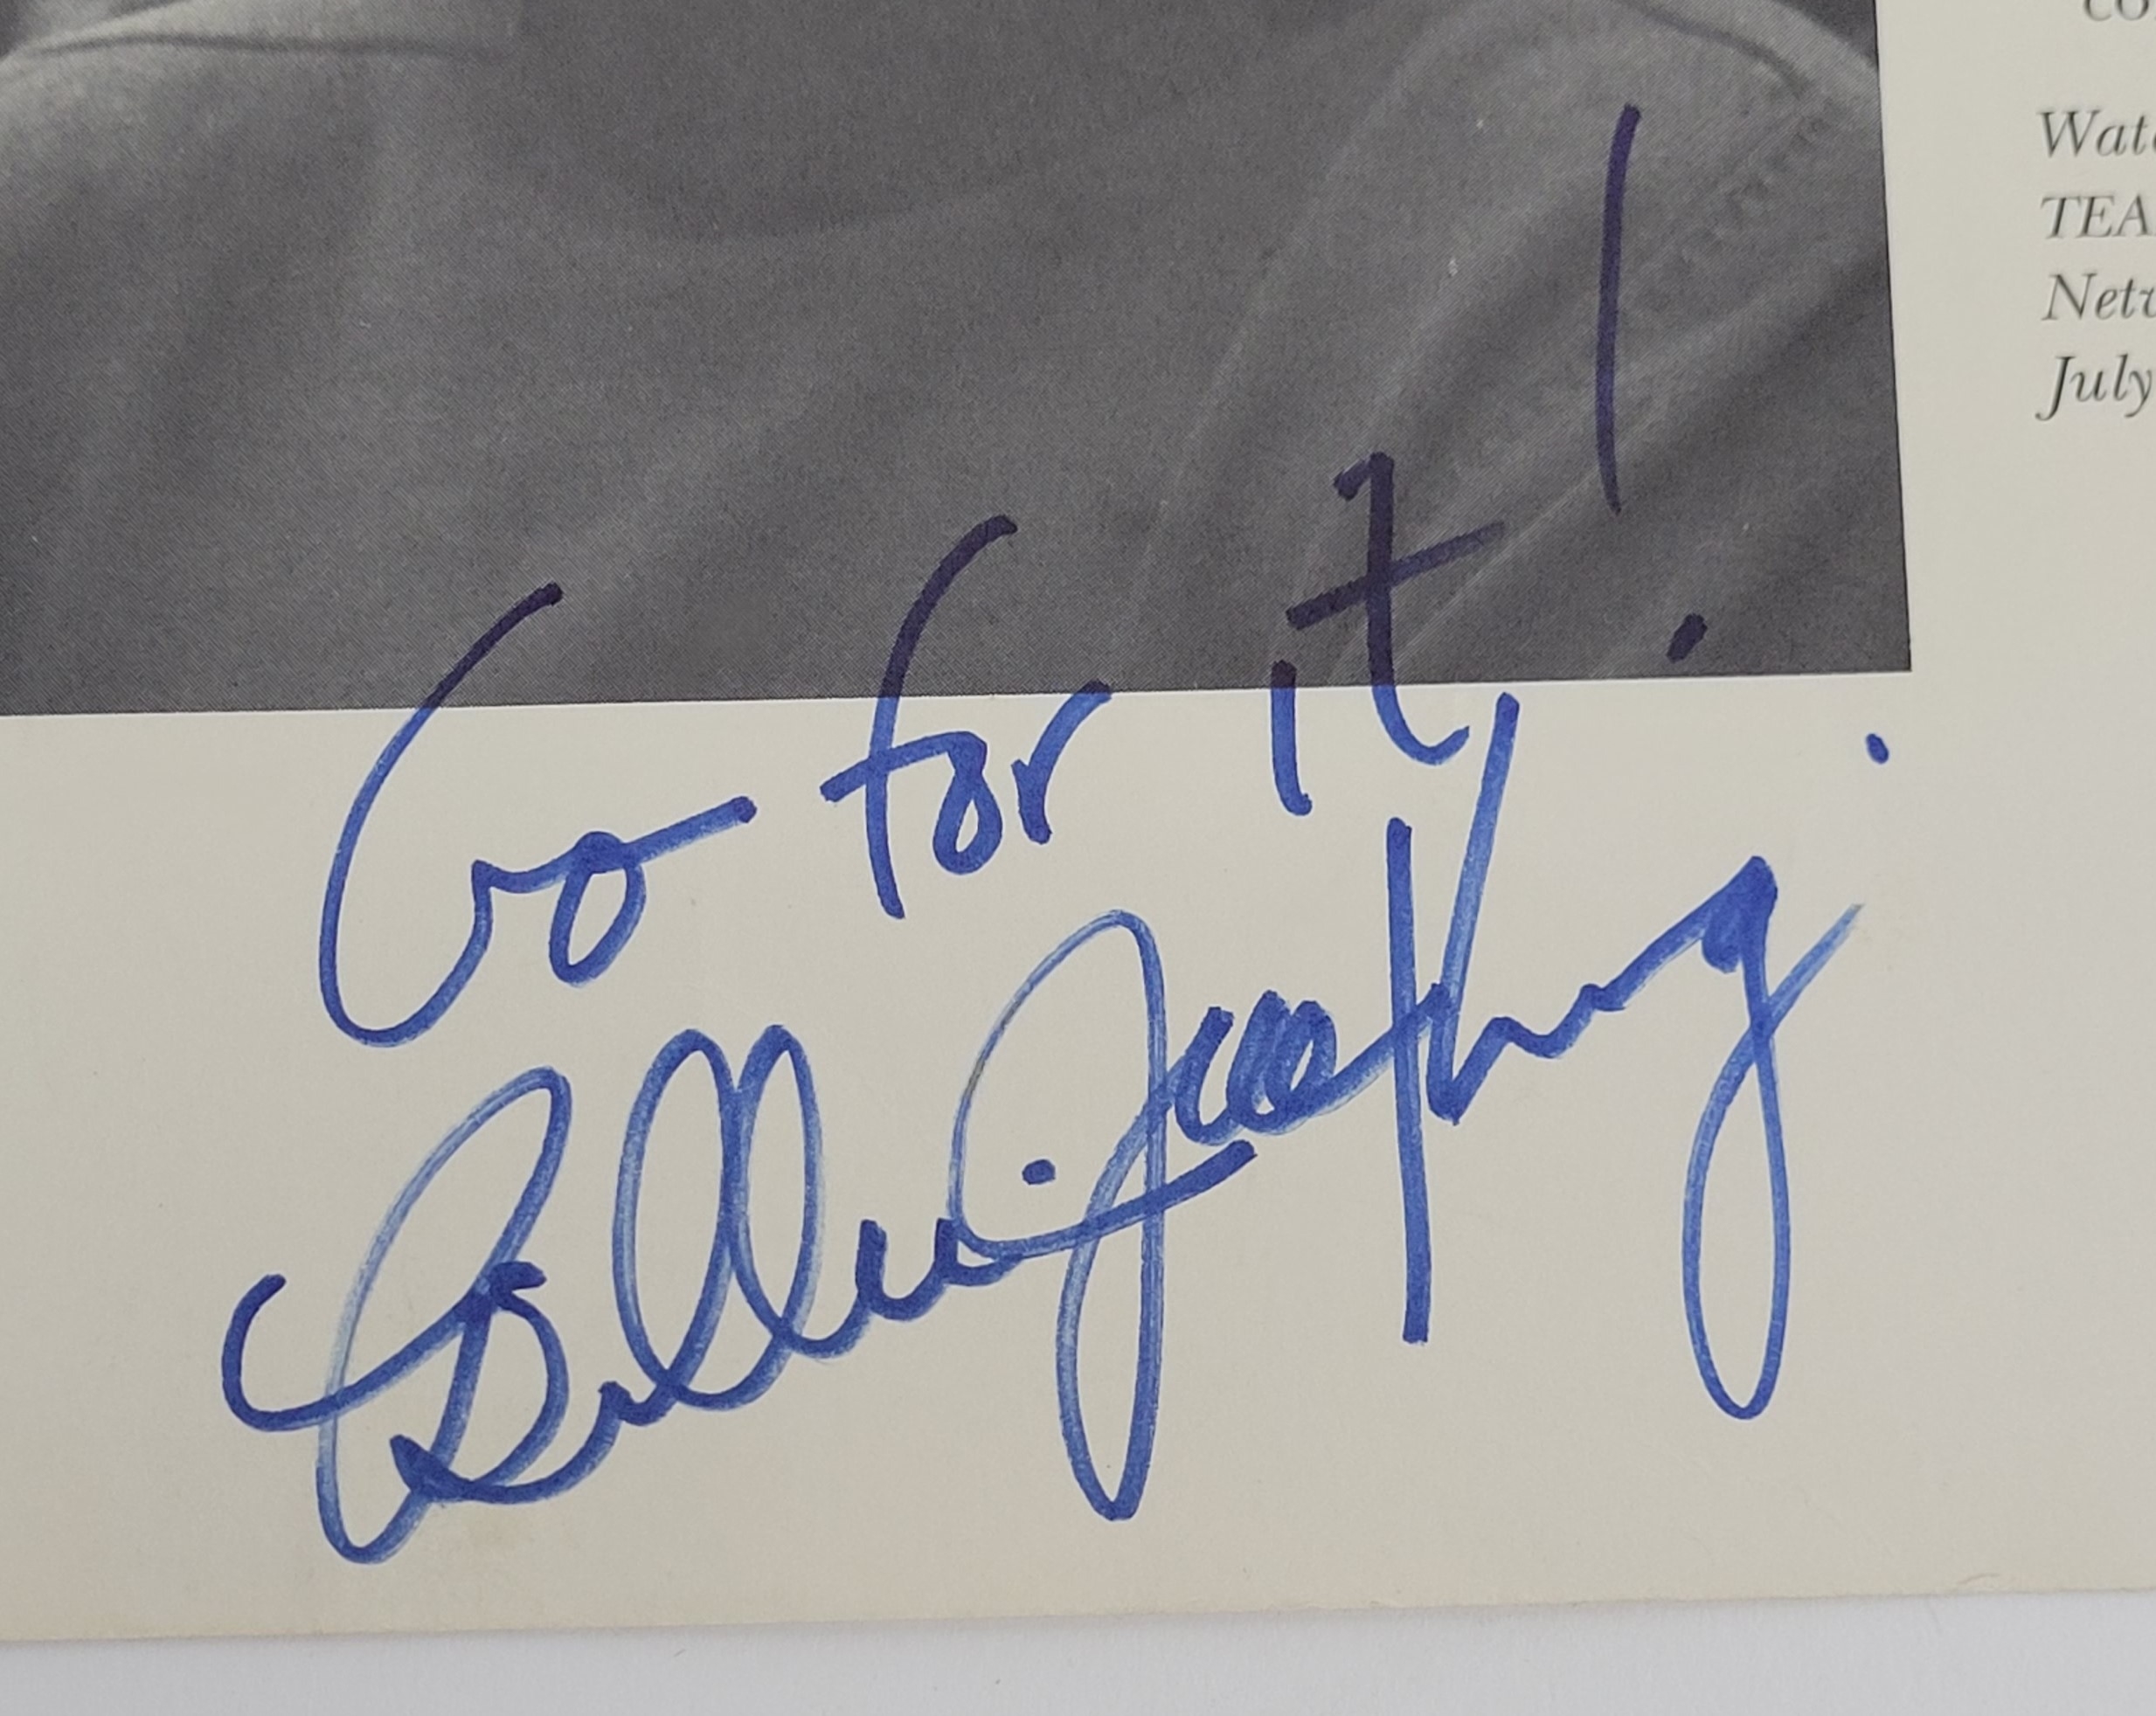 Go for it!
Billie Jean King
CO
Wat
TEA
Net
July